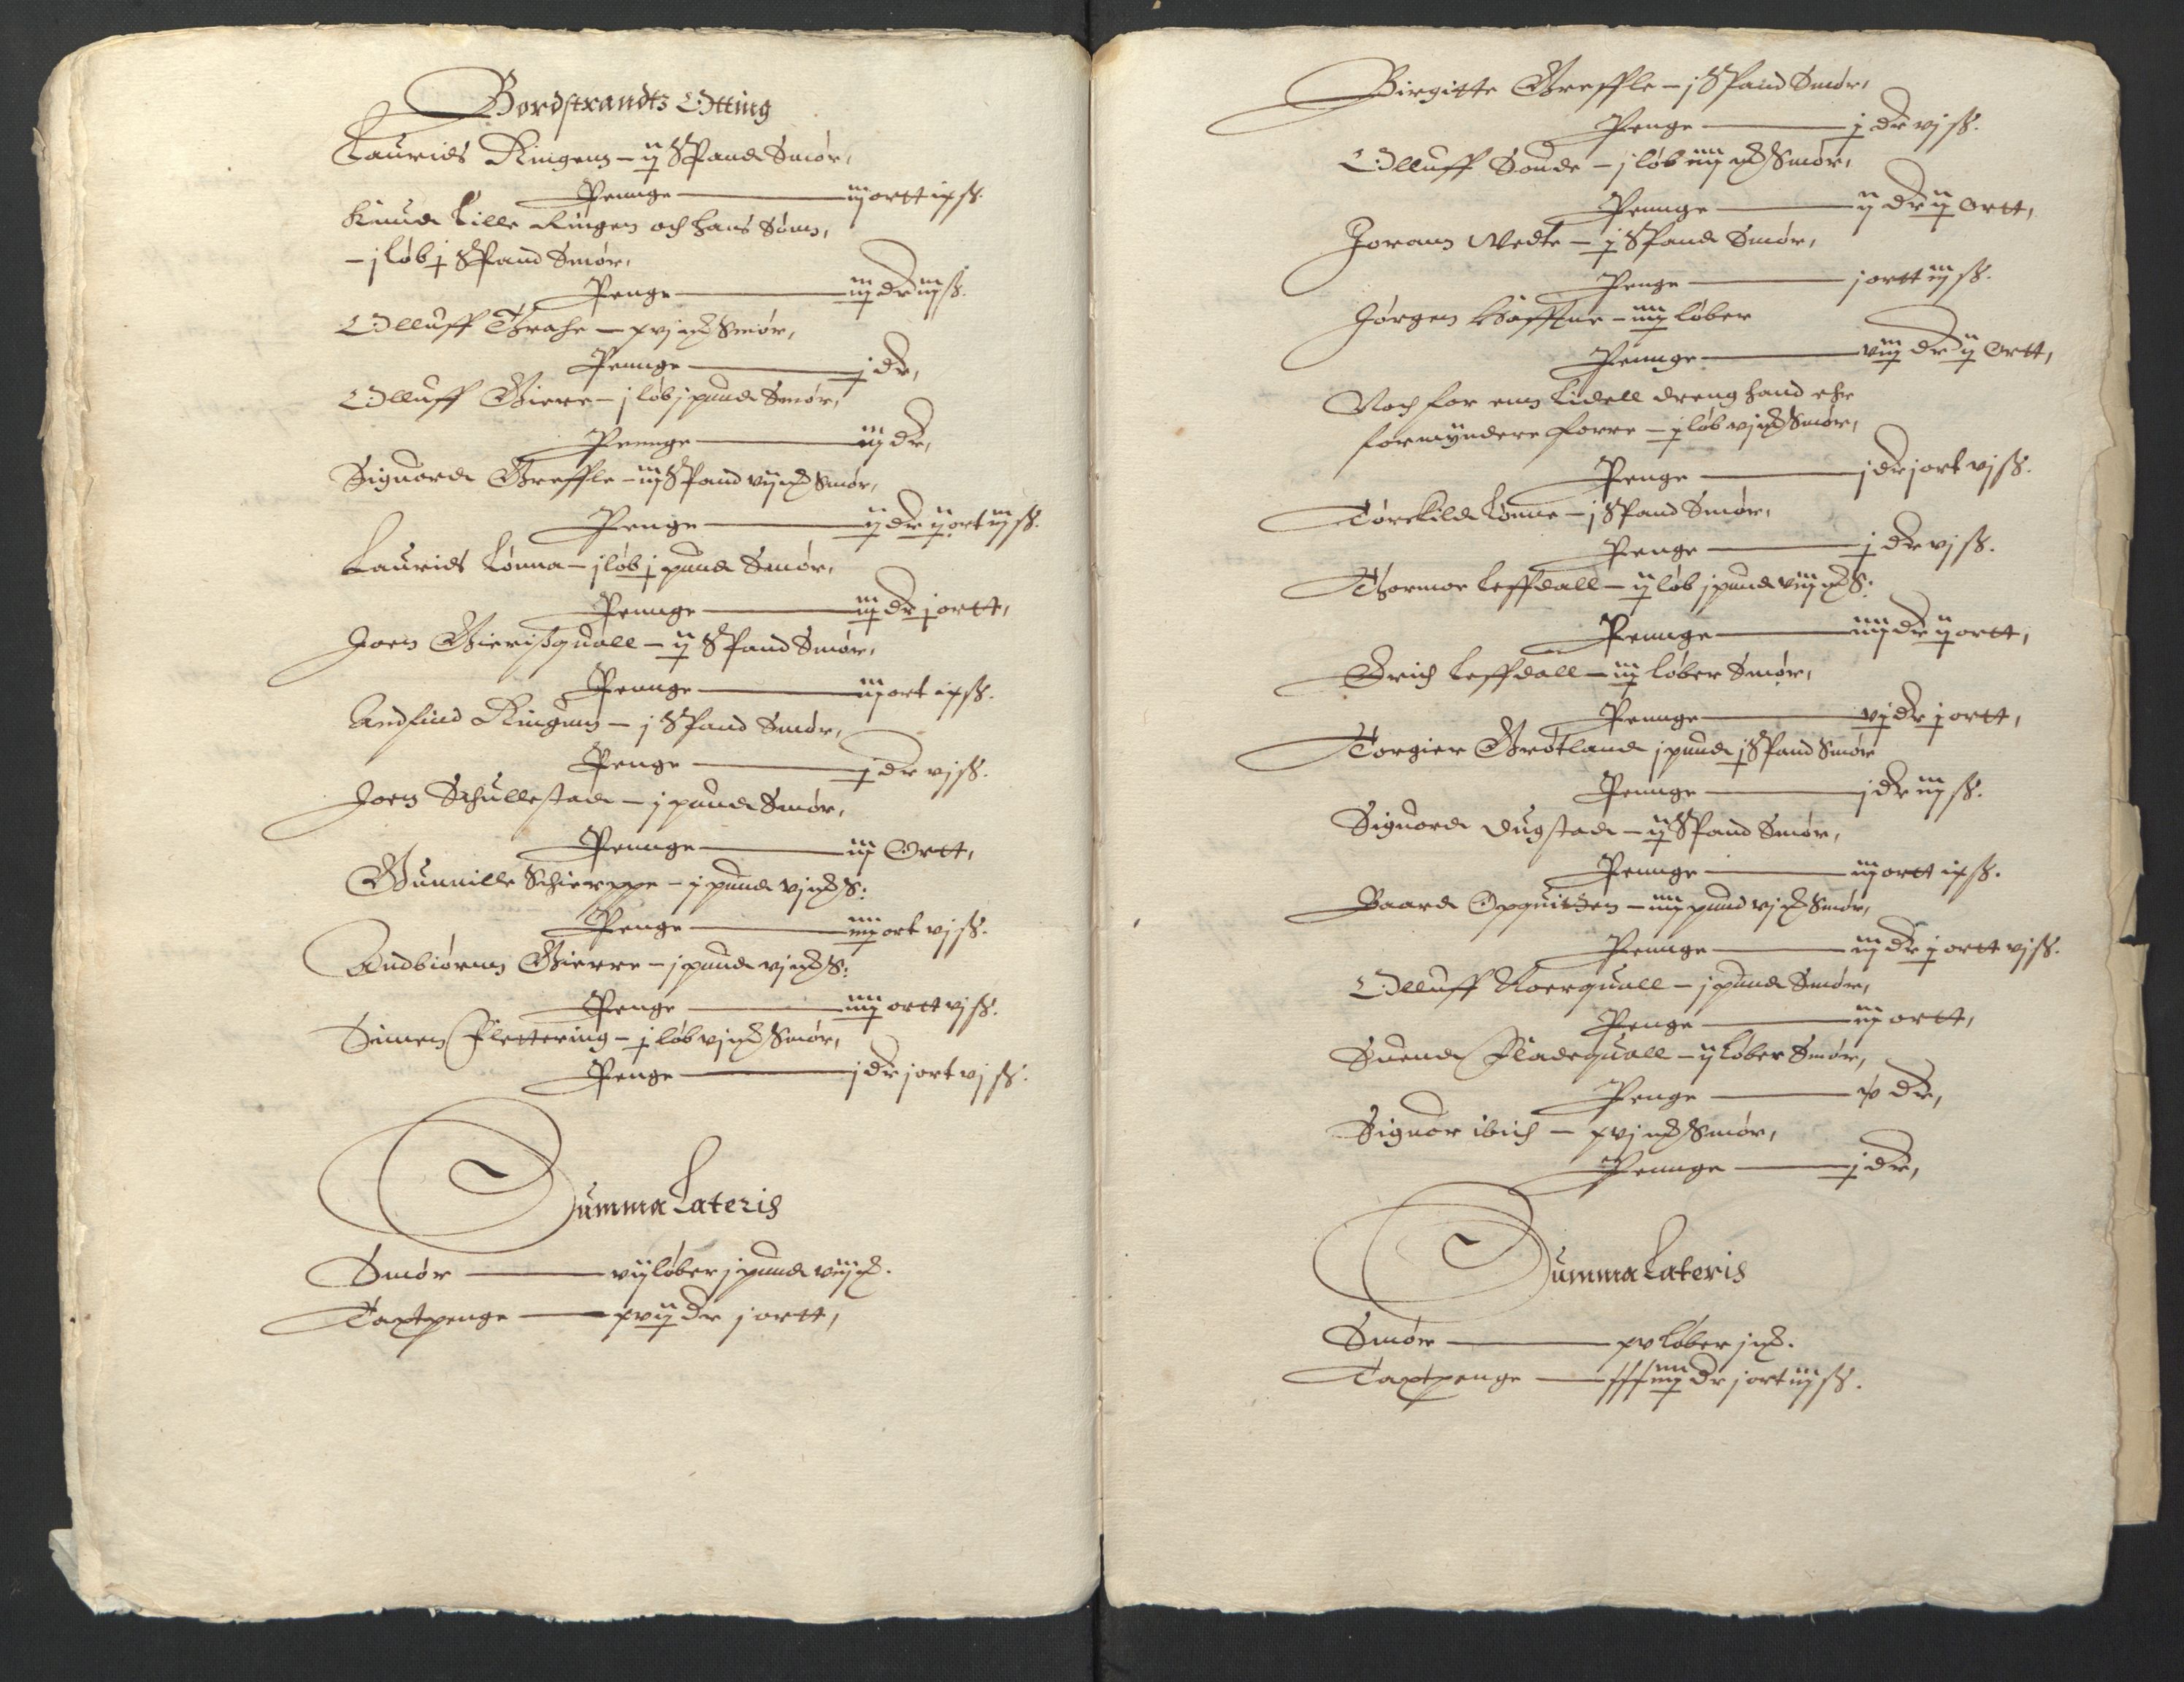 Bordstrandtz Otting
Laurids Ringen – ij Spand Smør,
Penge — iij ortt ix ß.
Knud Lille Ringen och hans Sønn,
– j løb j Spand Smør,
Penge — iij dr iij ß.
Olluff Brahe – xvj mk Smør,
Penge — j dr,
Olluff Gierre – j løb j pund Smør,
Penge — iij dr,
Siguord Greffle – iij Spand vij mk Smør,
Penge — ij dr ij ort iij ß.
Laurids Lønna – j løb j pund Smør,
Penge — iij dr j ortt,
Joen Gierisquall – ij Spand Smør,
Penge — iij ort ix ß.
Andfind Ringenn – j Spand Smør,
Penge — j dr vj ß.
Joen Schullestad – j pund Smør,
Penge — iij Ortt,
Gunnille Schierppe – j pund vj mk S:
Penge — iiij ort vj ß.
Andbiørnn Gierre – j pund vj mk S:
Penge — iiij ortt vj ß.
Simen Flettering – j løb vj mk Smør,
Penge — j dr j ort vj ß.
Summa Lateris
Smør — vij løber j pund viij mk.
Taxtpenge — xvij dr j ortt,
Birgitte Greffle – j Spand Smør,
Penge — j dr vj ß.
Olluff Sonde – j løb iiij mk Smør,
Penge — ij dr ij Ortt,
Jorann Vedte – j Spand Smør,
Penge — j ortt iij ß.
Jørgen – iiij løber
Penge — viij dr ij Ortt,
Noch for enn Lidell dreng hand ehr
formyndere forre – j løb vj mk Smør,
Penge — j dr j ort vj ß.
Tørckild Lønne – j Spand Smør,
Penge — j dr vj ß.
Thormor Leffdall – ij løb j pund viij mk S:
Penge — iiij dr ij ortt,
Erich Leffdall – iij løber Smør,
Penge — vj dr j ortt,
Torgier Grøtland j pund j Spand Smør
Penge — j dr iij ß.
Siguord Dugstad – ij Spand Smør,
Penge — iij ortt ix ß.
Baard Opquitzen – iiij pund vj mk Smør,
Penge — iij dr j ortt vj ß.
Olluff Roerquall – j pund Smør,
Penge — iij ortt,
Suend Fladequall – ij løber Smør,
Penge — dr,
Siguor ibich – xvj mk Smør,
Penge — j dr,
Summa Lateris
Smør — xv løber j mk.
Taxtpenge — xxxiiij dr j ort iij ß.